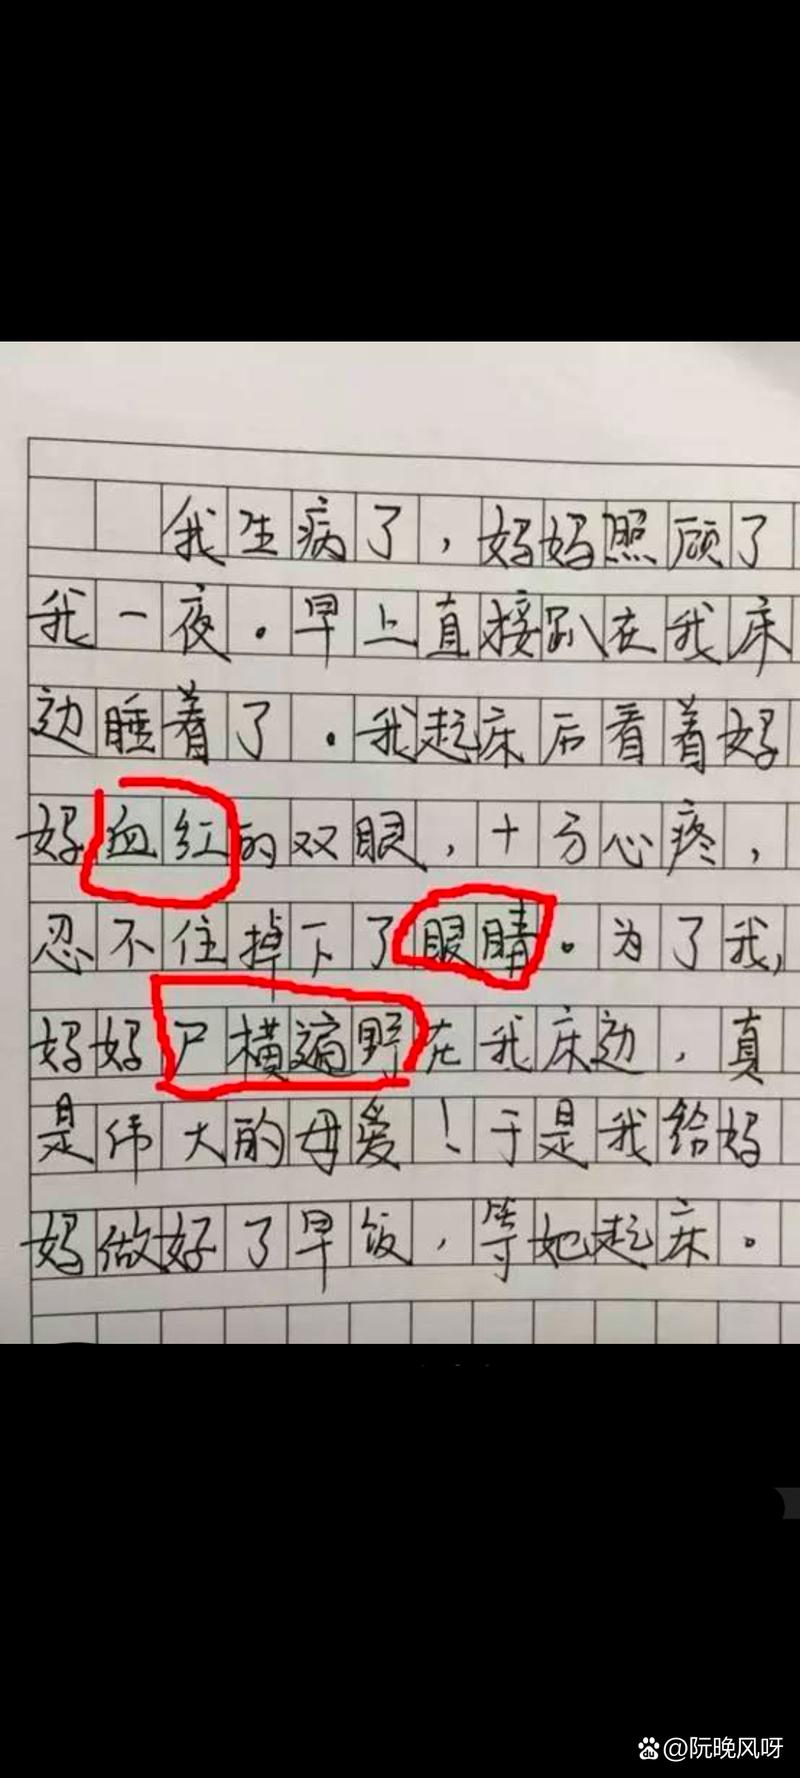 我生病了，妈妈照顾了
我一夜。早上直接趴在我床
边睡着了。我起床后看着妈
妈血红的双眼，十分心疼，
忍不住掉下了眼睛。为了我，
妈妈尸横遍野在我床边，真
是伟大的母爱！于是我给妈
妈做好了早饭，等她起床。
@阮晚风呀